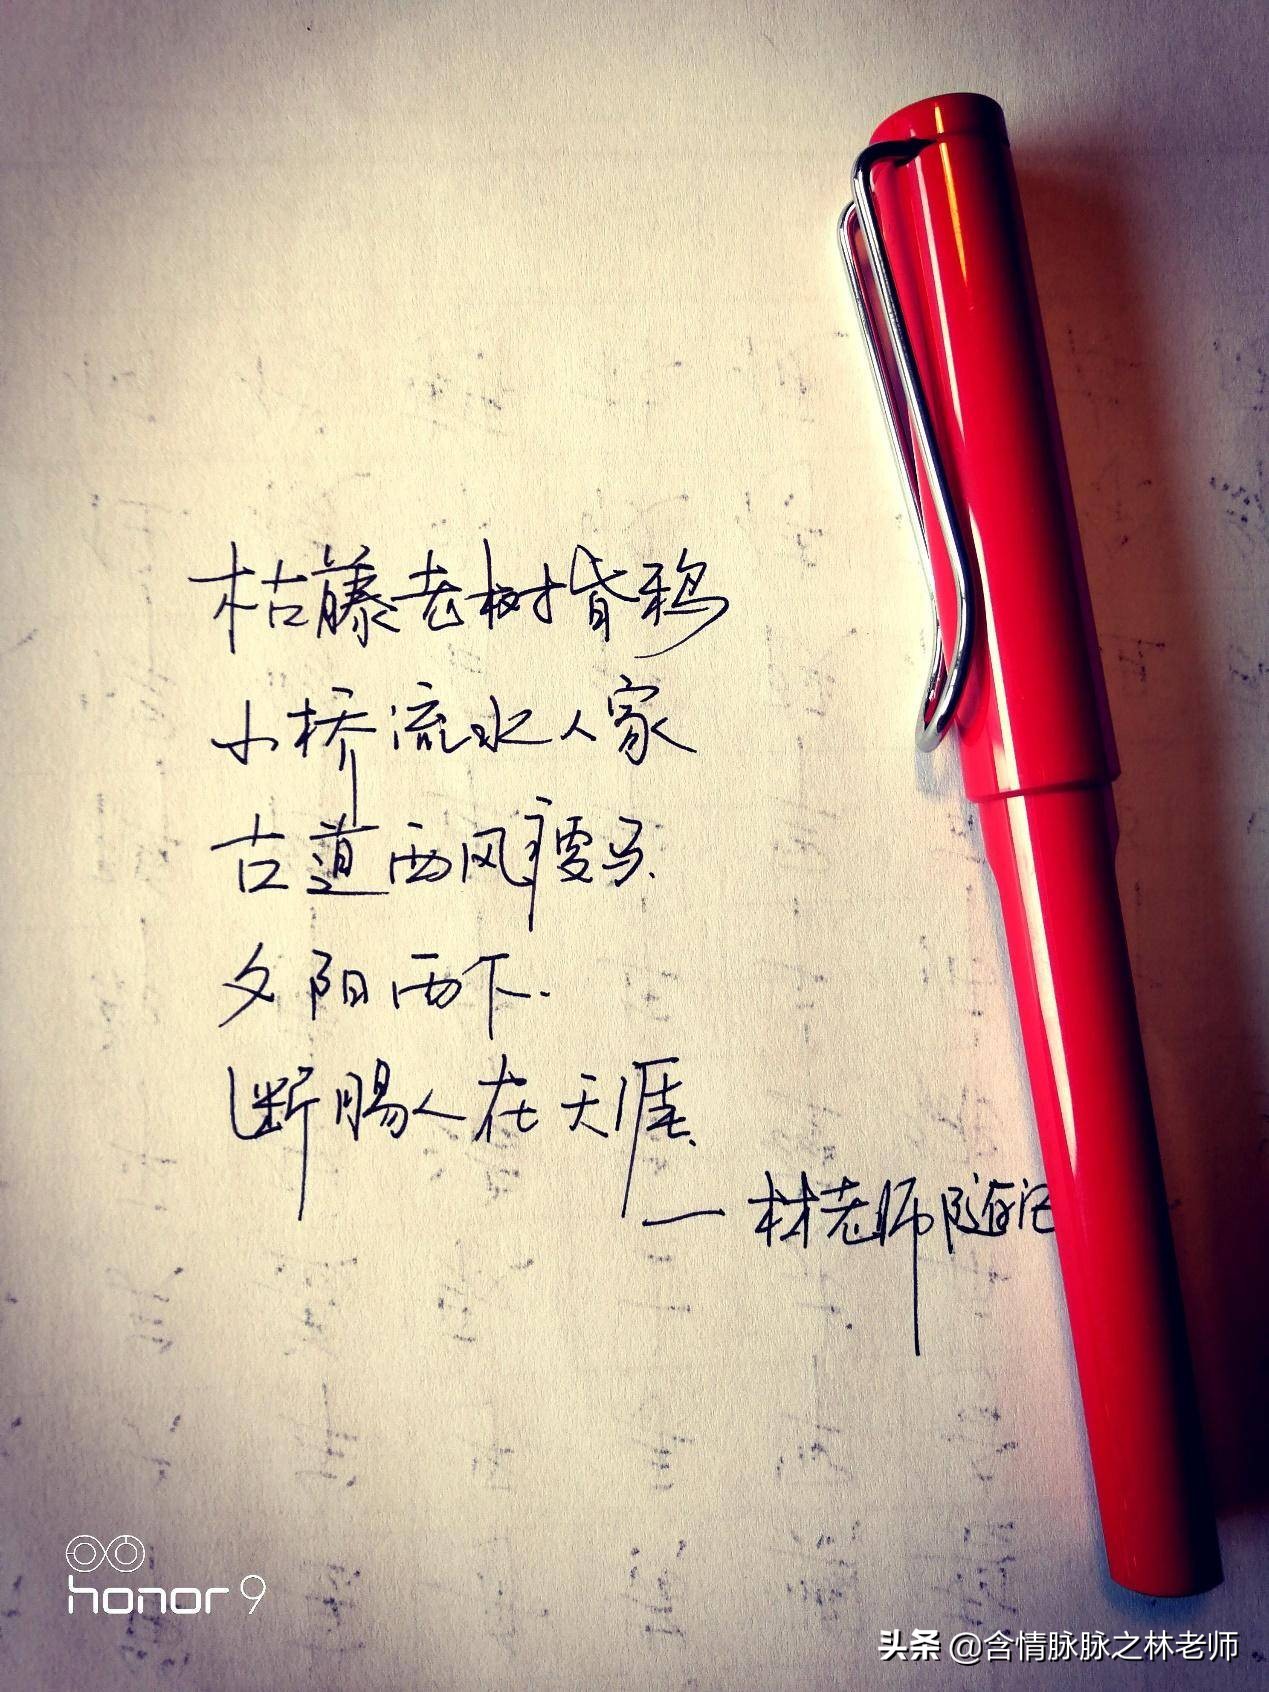 枯藤老树昏鸦
小桥流水人家
古道西风瘦马
夕阳西下.
断肠人在天涯
— 林老师随记
honor 9
头条 @含情脉脉之林老师